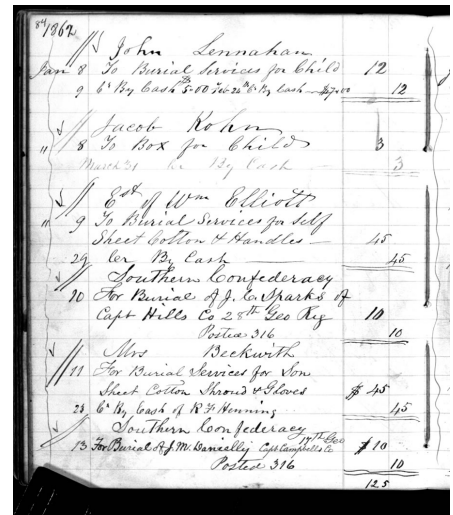 84 1862
John Lennahan
Jan 8 To Burial Services for Child 12
9 Cr By Cash 5.00 Feb 26th Cr By Cash $7.00 12
Jacob Kohn
" 8 To Box for Child 3
March 31 Cr By Cash 3
Est of Wm Elliott
" 9 To Burial Services for Self
Sheet Cotton & Handles 45
29 Cr By Cash 45
Southern Confederacy
10 For Burial of J. C. Sparks of
Capt Hills Co 28th Geo Reg 10
Posted 316 10
Mrs Beckwith
11 For Burial Services for Son
Sheet Cotton Shroud & Gloves $ 45
28 Cr By Cash of R F Henning 45
Southern Confederacy
13 For Burial of J. M. Danielly Capt Campbells Co 17th Geo $10
Posted 316 10
125